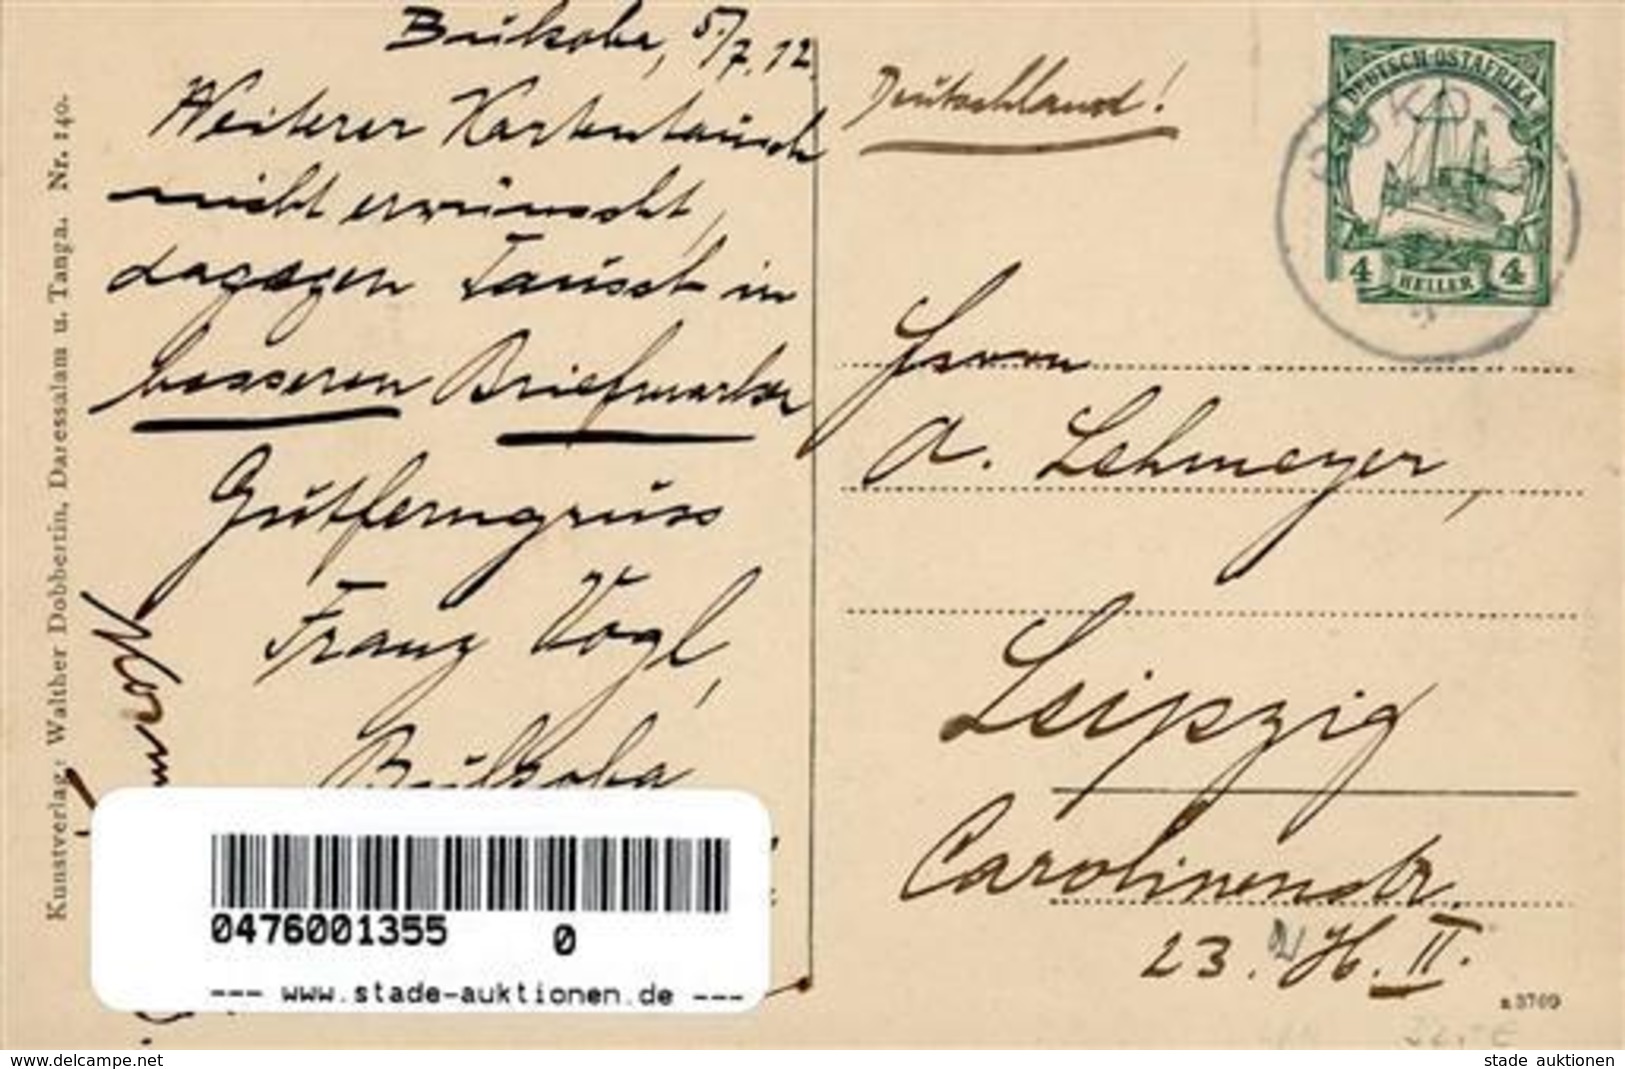 Bukoba, 5/7.12.
Weiterer Kartentausch
nicht erwünscht,
dagegen Tausch in
besseren Briefmarken
Gutferngruss
Franz Vogl,
Bukoba
Kunstverlag: Walther Dobbertin, Daressalam u. Tanga. Nr. 140.
Deutschland!
DEUTSCH-OSTAFRIKA
4 HELLER 4
Herrn
A. Lehmeyer,
Leipzig
Carolinenstr.
23. H. II.
0476001355 0
--- www.stade-auktionen.de ---
www.delcampe.net
stade auktionen